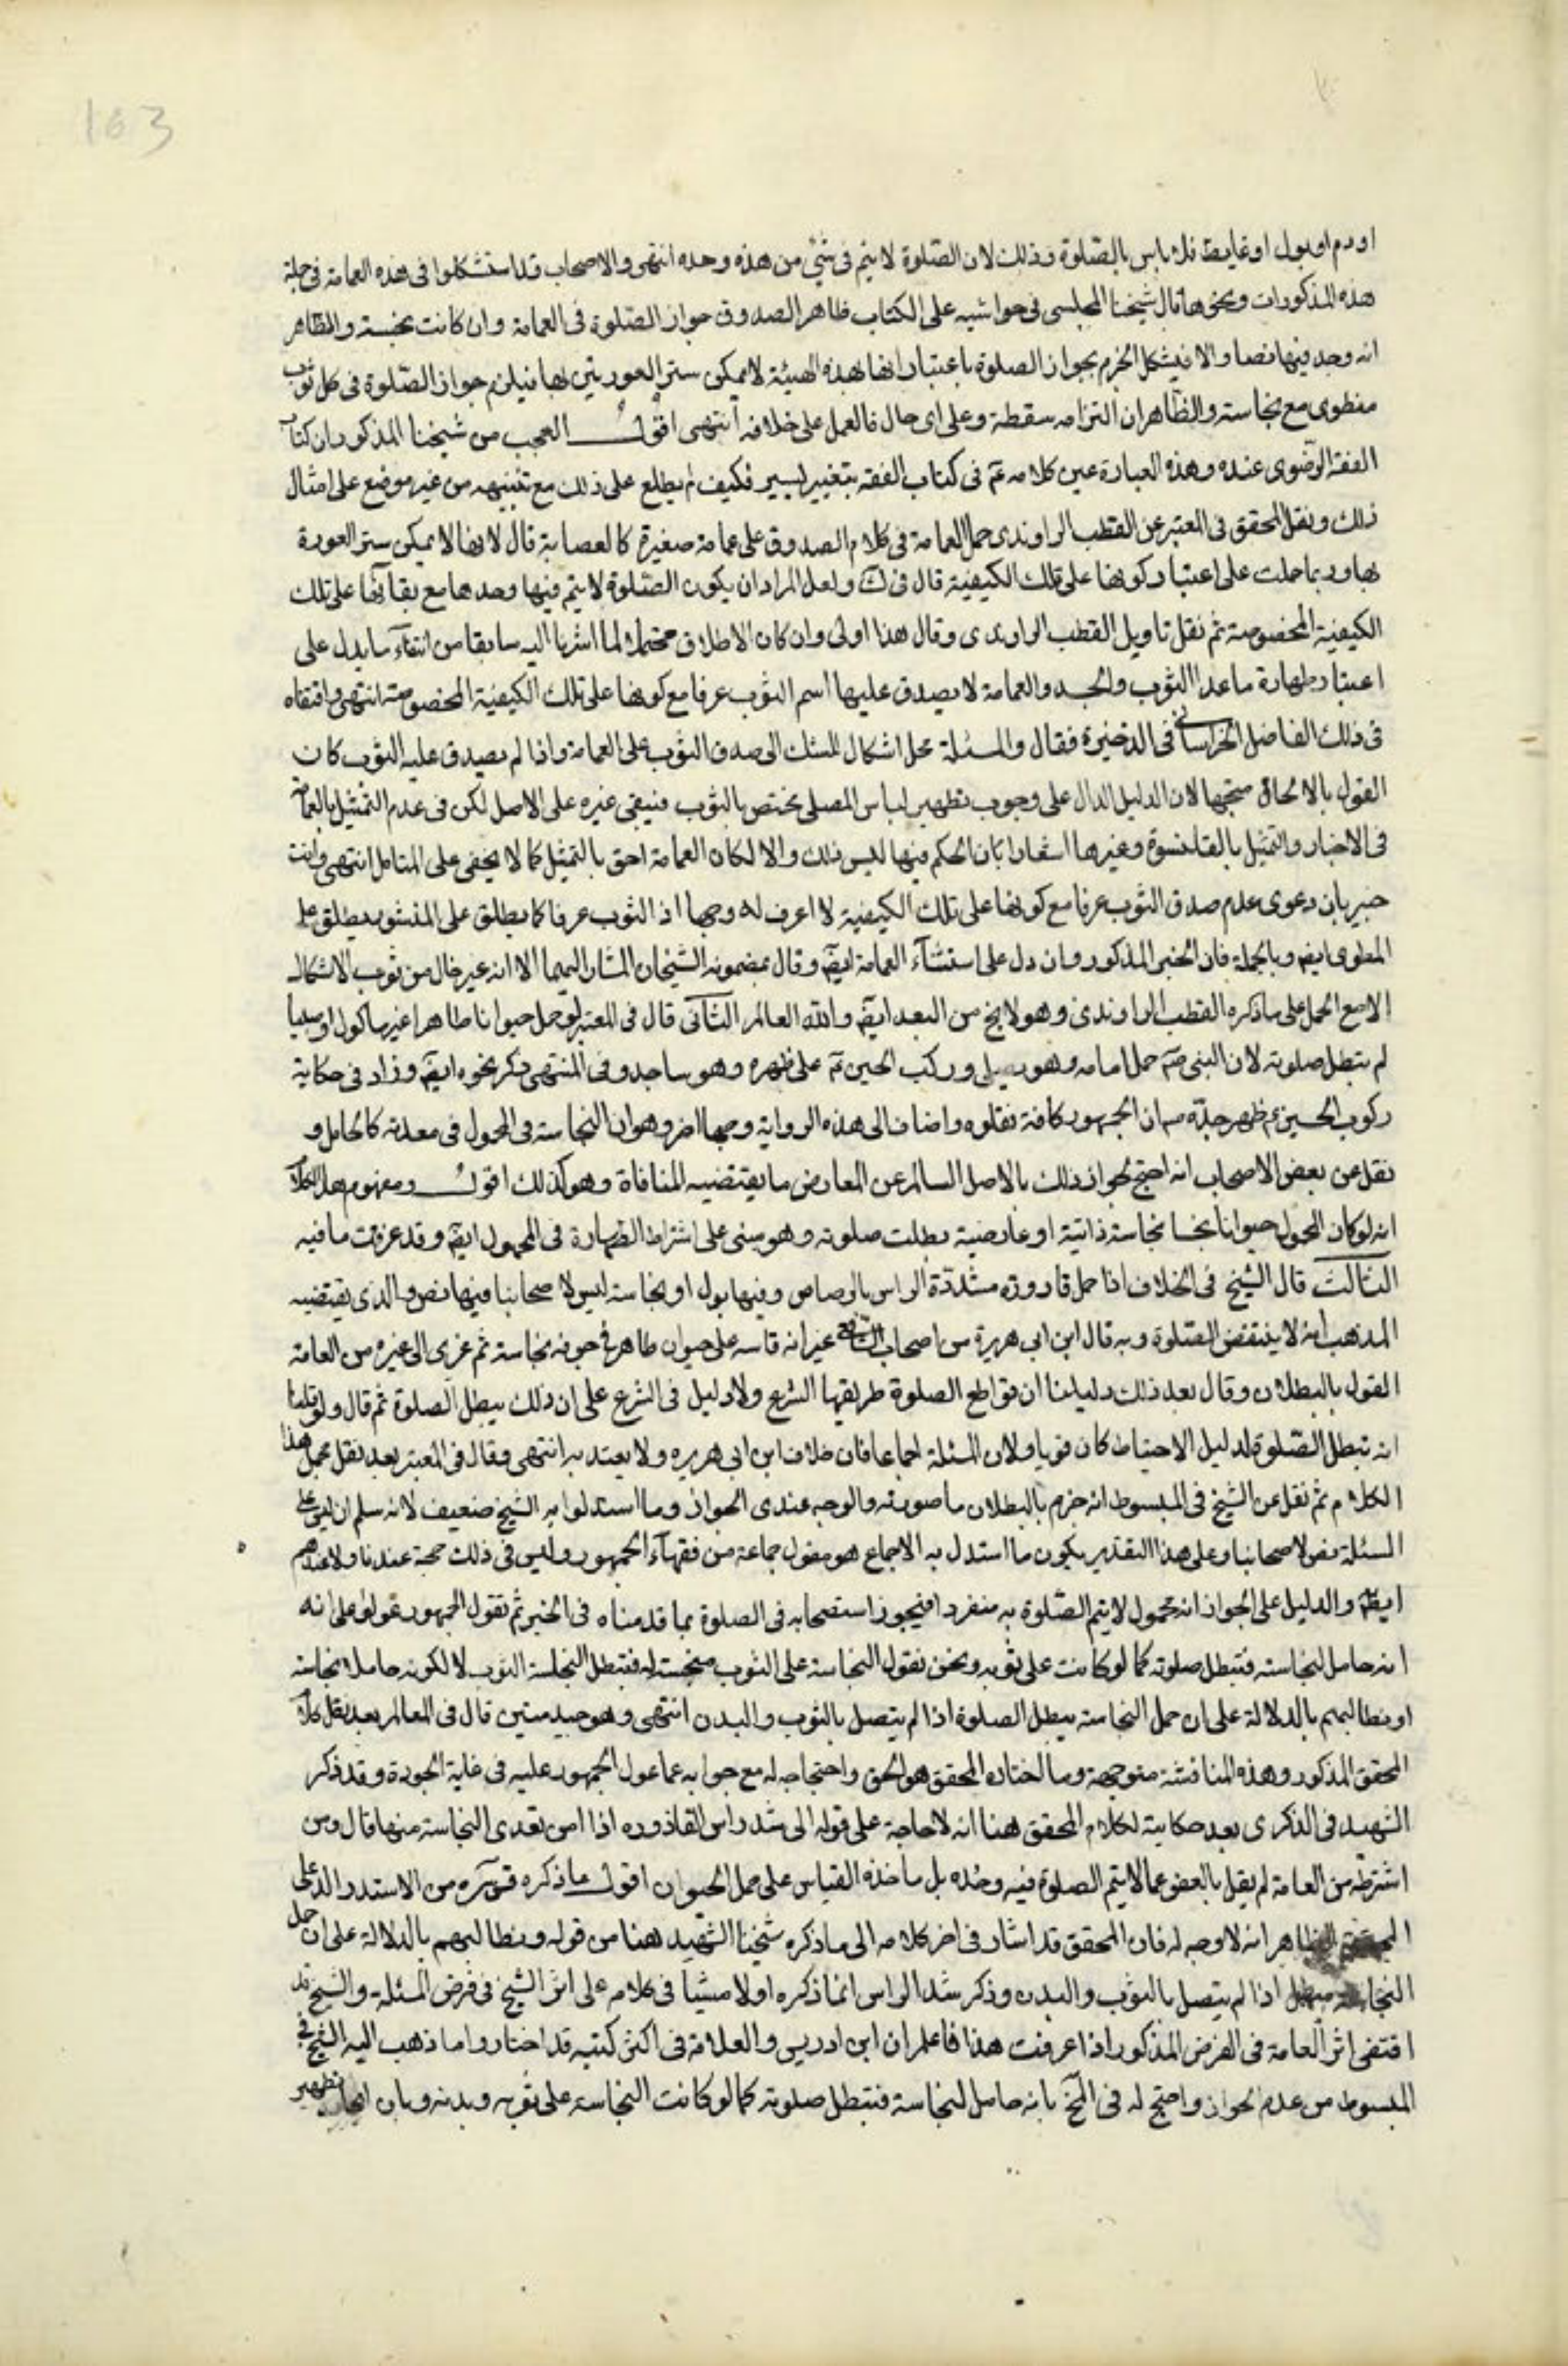 163
او دم او بول او غايط فلا باس بالصّلوة وذلك لان الصّلوة لا يتم فى شئ من هذه وحده انتهى والاصحاب قد استشكلوا فى هذه العمامة فى جملة
هذه المذكورات ونحوها قال شيخنا المجلسى فى حواشيه على الكتاب ظاهر الصدوق جواز الصّلوة فى العمامة وان كانت نجسة والظاهر
انه وجد فيها نصا والا فيشكل الجزم بجواز الصلوة باعتبار انها بهذه الهيئة لا يمكن ستر العورتين بها فيلزم جواز الصّلوة فى كل ثوب
منطوى مع نجاسته والظّاهر ان التزامه سقطة وعلى اى حال فالعمل على خلافه انتهى اقول العجب من شيخنا المذكور ان كتاب
الفقه الرضوى عنده وهذه العبارة عين كلامه عم فى كتاب الفقه بتغيير يسير فكيف لم يطلع على ذلك مع تنبيهه من غير موضع على امثال
ذلك ونقل المحقق فى المعتبر عن القطب الراوندى حمل العمامة فى كلام الصدوق على عمامة صغيرة كالعصابة قال لانها لا يمكن ستر العورة
بها وربما حملت على اعتبار كونها على تلك الكيفية قال فى ك ولعل المراد ان يكون الصّلوة لا يتم فيها وحدها مع بقائها على تلك
الكيفية المخصوصة ثم نقل تاويل القطب الراوندى وقال هذا اولى وان كان الاطلاق محتملا لما اشرنا اليه سابقا من انتفاء ما يدل على
اعتبار طهارة ماعدا الثوب والجسد والعمامة لا يصدق عليها اسم الثوب عرفا مع كونها على تلك الكيفية المخصوصة انتهى واقتفاه
فى ذلك الفاضل الخراسانى فى الذخيرة فقال والمسئلة محل اشكال للشك فى صدق الثوب على العمامة واذا لم يصدق عليه الثوب كان
القول بالالحاق متجها لان الدليل الدال على وجوب تطهير لباس المصلى يختص بالثوب فيبقى غيره على الاصل لكن فى عدم التمثيل بالعمامة
فى الاخبار والتمثيل بالقلنسوة وغيرها اشعارا بان الحكم فيها ليس ذلك والا لكان العمامة احق بالتمثيل كما لا يخفى على المتامل انتهى وانت
خبير بان دعوى عدم صدق الثوب عرفا مع كونها على تلك الكيفية لا اعرف له وجها اذ الثوب عرفا كما يطلق على المنشور يطلق على
المطوى ايضم وبالجملة فان الخبر المذكور وان دل على استثناء العمامة ايضم وقال بمضمونه الشيخان المشار اليهما الا انه غير خال من ثوب الاشكال
الا مع الحمل على ما ذكره القطب الراوندى وهو لا يخ من البعد ايضم والله العالم الثانى قال فى المعتبر لو حمل حيوانا طاهرا غير ماكول او صبيا
لم تبطل صلوته لان النبى صم حمل امامه وهو يصلى وركب الحسين عم على ظهره وهو ساجد وفى المنتهى ذكر نحوه ايضم وزاد فى حكاية
ركوب الحسين عم ظهر جدّه ص ان الجمهور كافة نقلوه واضاف الى هذه الرواية وجها اخر وهو ان النجاسة فى المحمول فى معدنه كالحامل و
نقل عن بعض الاصحاب انه احتج لجواز ذلك بالاصل السالم عن المعارض ما يقتضيه المنافاة وهو كذلك اقول ومفهوم هذا الكلام
انه لو كان المحمول حيوانا نجسا نجاسة ذاتية او عارضية بطلت صلوته وهو مبنى على اشتراط الطهارة فى المحمول ايضم وقد عرفت ما فيه
الثالث قال الشيخ فى الخلاف اذا حمل قارورة مشدّدة الراس بالرصاص وفيها بول او نجاسة ليس لاصحابنا فيها نص والذى يقتضيه
المذهب انه لا ينتقض الصّلوة وبه قال ابن ابى هريرة من اصحاب الشافعى غير انه قاسه على حيوان طاهر فى جوفه نجاسة ثم عزى الى غيره من العامة
القول بالبطلان وقال بعد ذلك دليلنا ان قواطع الصلوة طريقها الشرع ولا دليل فى الشرع على ان ذلك يبطل الصلوة ثم قال ولو قلنا
انه تبطل الصّلوة لدليل الاحتياط كان قويا ولان المسئلة اجماعا فان خلاف ابن ابى هريره ولا يعتد به انتهى وقال فى المعتبر بعد نقل مجمل هذا
الكلام ثم نقل عن الشيخ فى المبسوط انه جزم بالبطلان ما صورته والوجه عندى الجواز وما استدلوا به الشيخ ضعيف لانه سلم ان ليس على
المسئلة نص لاصحابنا وعلى هذا التقدير يكون ما استدل به الاجماع هو مقول جماعة من فقهاء الجمهور وليس فى ذلك حجة عندنا ولا عندهم
ايضم والدليل على الجواز انه محمول لا يتم الصّلوة به منفردا فيجوز استصحابه فى الصلوة بما قدمناه فى الخبر ثم نقول الجمهور عولوا على انه
انه حامل لنجاسته فتبطل صلوته كما لو كانت على ثوبه ونحن نقول النجاسة على الثوب منجسة له فتبطل لنجاسة الثوب لا لكونه حاملا نجاسة
او نطالبهم بالدلالة على ان حمل النجاسة يبطل الصلوة اذا لم يتصل بالثوب والبدن انتهى وهو جيد متين قال فى المعالم بعد نقل كلام
المحقق المذكور وهذه المناقشة متوجهة وما اختاره المحقق هو الحق واحتجاجه له مع جوابه عما عول الجمهور عليه فى غاية الجودة وقد ذكر
الشهيد فى الذكرى بعد حكايته لكلام المحقق هنا انه لا حاجة على قوله الى شد راس القاذوره اذا امن تعدى النجاسة منها قال ومن
اشترطه من العامة لم يقل بالعفو عما لا يتم الصلوة فيه وحده بل ماخذه القياس على حمل الحيوان اقول ما ذكره قدس سره من الاستدراك على
المحقق الظاهر انه لا وجه له فان المحقق قد اشار فى اخر كلامه الى ما ذكره شيخنا الشهيد هنا من قوله ونطالبهم بالدلالة على ان حمل
النجاسة مبطل اذا لم يتصل بالثوب والبدن وذكر شد الراس انما ذكره اولا مشيا فى كلامه على اثر الشيخ فى فرض المسئلة والشيخ قد
اقتفى اثر العامة فى الفرض المذكور اذا عرفت هذا فاعلم ان ابن ادريس والعلامة فى اكثر كتبه قد اختاروا ما ذهب اليه الشيخ فى
المبسوط من عدم الجواز واحتج له فى المخ بانه حامل لنجاسة فتبطل صلوته كما لو كانت النجاسة على ثوبه وبدنه وبان تطهير